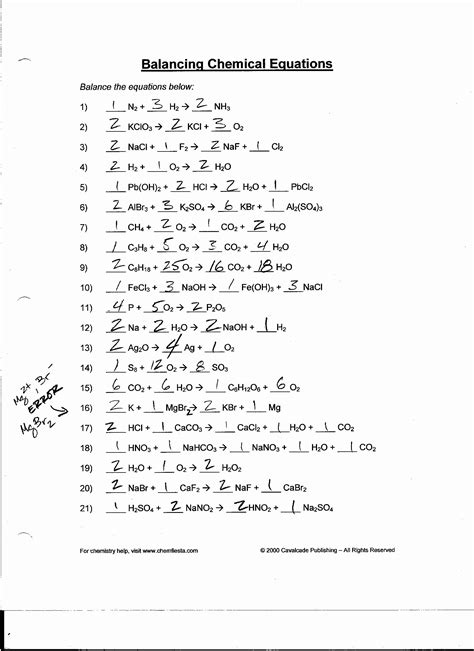 Balancing Chemical Equations
Balance the equations below:
1) 1 N2 + 3 H2 → 2 NH3
2) 2 KClO3 → 2 KCl + 3 O2
3) 2 NaCl + 1 F2 → 2 NaF + 1 Cl2
4) 2 H2 + 1 O2 → 2 H2O
5) 1 Pb(OH)2 + 2 HCl → 2 H2O + 1 PbCl2
6) 2 AlBr3 + 3 K2SO4 → 6 KBr + 1 Al2(SO4)3
7) 1 CH4 + 2 O2 → 1 CO2 + 2 H2O
8) 1 C3H8 + 5 O2 → 3 CO2 + 4 H2O
9) 2 C8H18 + 25 O2 → 16 CO2 + 18 H2O
10) 1 FeCl3 + 3 NaOH → 1 Fe(OH)3 + 3 NaCl
11) 4 P + 5 O2 → 2 P2O5
12) 2 Na + 2 H2O → 2 NaOH + 1 H2
13) 2 Ag2O → 4 Ag + 1 O2
14) 1 S8 + 12 O2 → 8 SO3
15) 6 CO2 + 6 H2O → 1 C6H12O6 + 6 O2
Mg2+ Br-
ERROR
MgBr2
16) 2 K + 1 MgBr2 → 2 KBr + 1 Mg
17) 2 HCl + 1 CaCO3 → 1 CaCl2 + 1 H2O + 1 CO2
18) 1 HNO3 + 1 NaHCO3 → 1 NaNO3 + 1 H2O + 1 CO2
19) 2 H2O + 1 O2 → 2 H2O2
20) 2 NaBr + 1 CaF2 → 2 NaF + 1 CaBr2
21) 1 H2SO4 + 2 NaNO2 → 2 HNO2 + 1 Na2SO4
For chemistry help, visit www.chemfiesta.com © 2000 Cavalcade Publishing – All Rights Reserved